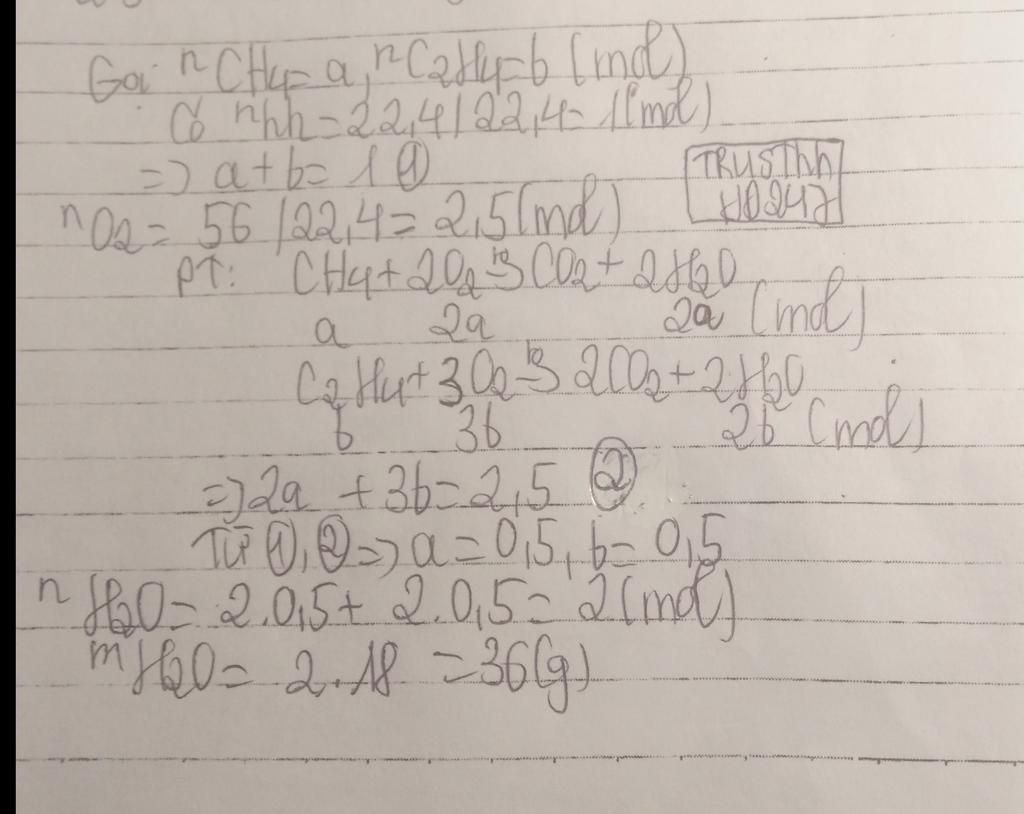 Gọi nCH4=a, nC2H4=b (mol)
Có nhh=22,4/22,4=1(mol)
=> a+b=1 ①
TRUSThh
HO247
nO2= 56/22,4=2,5(mol)
PT: CH4+2O2 -to-> CO2+2H2O
a 2a 2a (mol)
C2H4+3O2 -to-> 2CO2+2H2O
b 3b 2b (mol)
=> 2a+3b=2,5 ②
Từ ①,② => a=0,5, b=0,5
nH2O=2.0,5+2.0,5=2(mol)
mH2O=2.18=36(g)